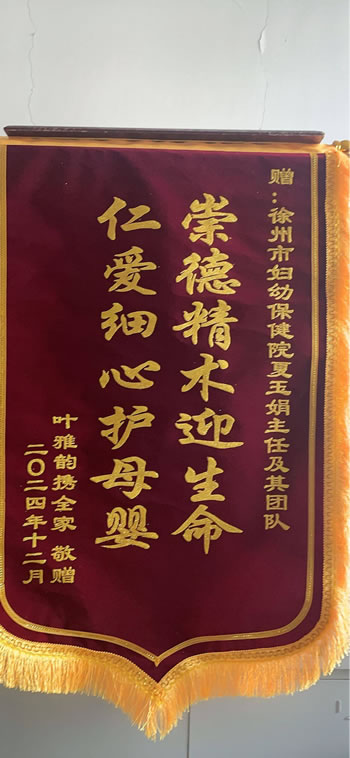 赠：徐州市妇幼保健院夏玉娟主任及其团队
崇德精术迎生命
仁爱细心护母婴
叶雅韵携全家 敬赠
二〇二四年十二月